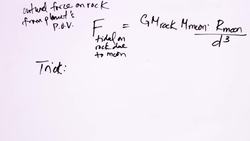 actual force on rock
from planet's
P.O.V.
F tidal on rock due to moon = G M rock M moon · R moon / d³
Trick: